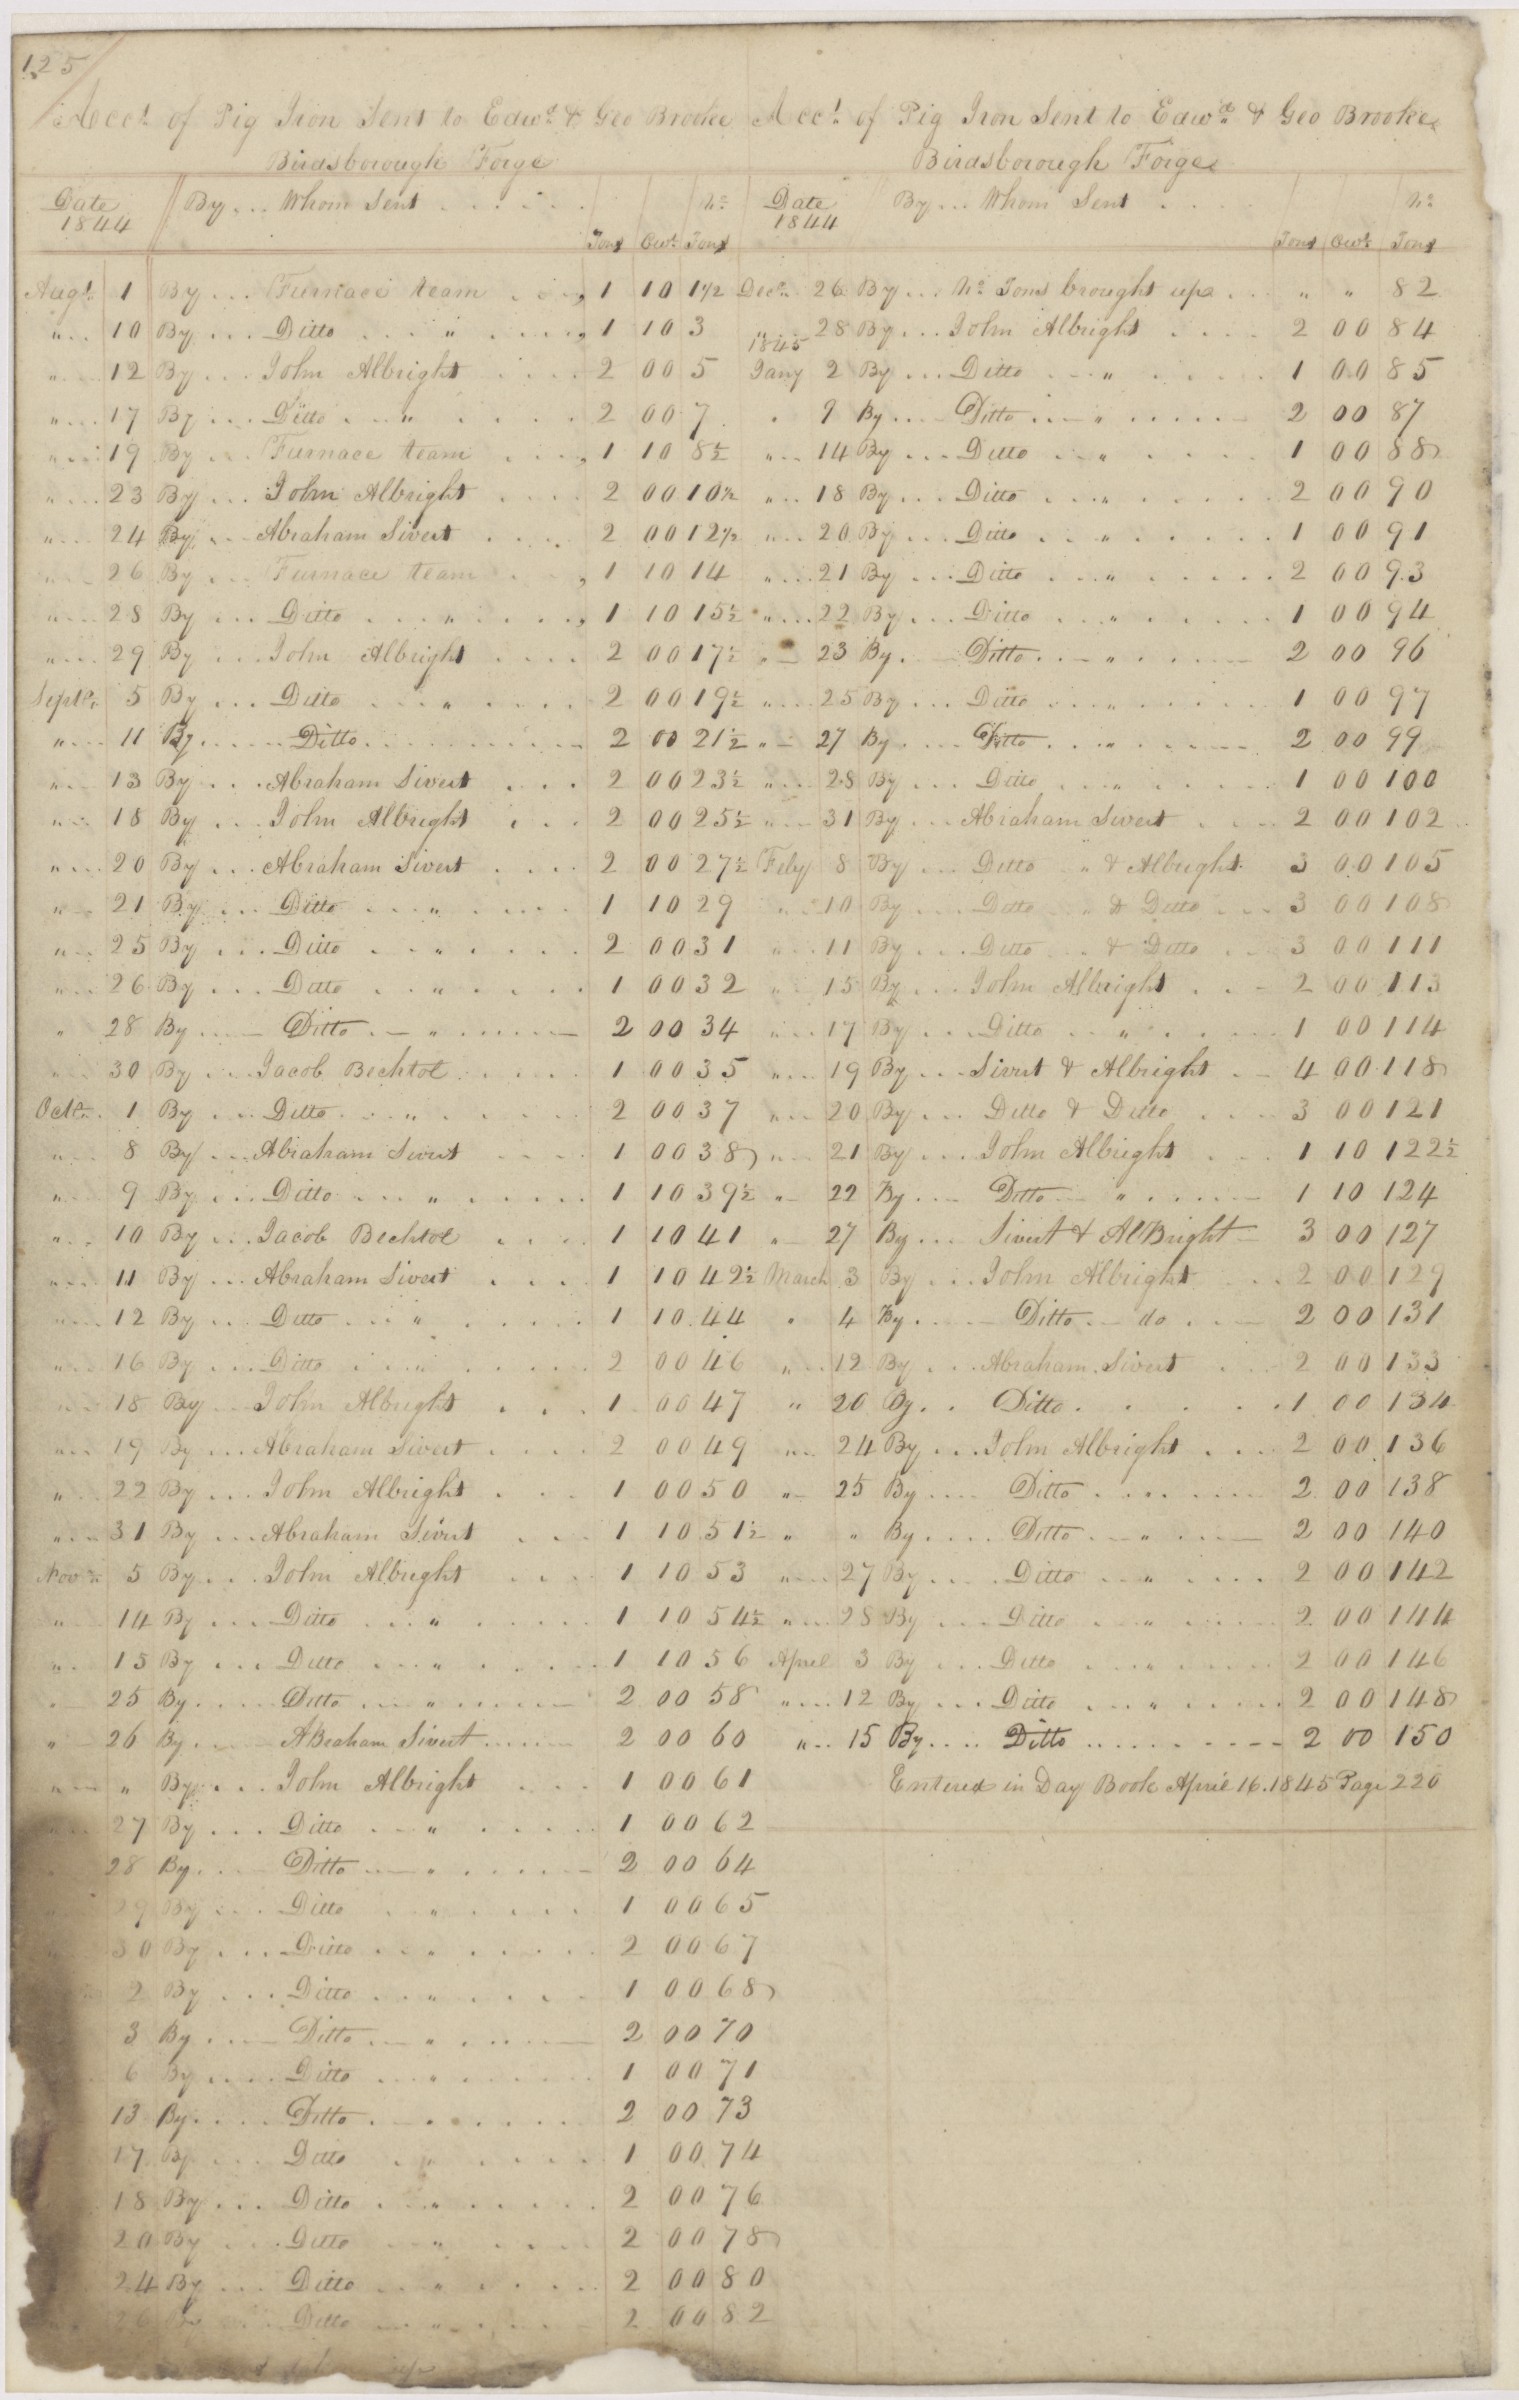 125
Acct. of Pig Iron Sent to Edwd. & Geo Brooke
Birdsborough Forge
Date 1844 By... Whom Sent Tons Cwt. No. Tons
Augt. 1 By... Furnace team 1 10 1 1/2
" 10 By... Ditto " 1 10 3
" 12 By... John Albright 2 00 5
" 17 By... Ditto " 2 00 7
" 19 By... Furnace team 1 10 8 1/2
" 23 By... John Albright 2 00 10 1/2
" 24 By... Abraham Sivert 2 00 12 1/2
" 26 By... Furnace team 1 10 14
" 28 By... Ditto " 1 10 15 1/2
" 29 By... John Albright 2 00 17 1/2
Septr. 5 By... Ditto " 2 00 19 1/2
" 11 By... Ditto 2 00 21 1/2
" 13 By... Abraham Sivert 2 00 23 1/2
" 18 By... John Albright 2 00 25 1/2
" 20 By... Abraham Sivert 2 00 27 1/2
" 21 By... Ditto " 1 10 29
" 25 By... Ditto " 2 00 31
" 26 By... Ditto " 1 00 32
" 28 By... Ditto " 2 00 34
" 30 By... Jacob Bechtol 1 00 35
Octr. 1 By... Ditto " 2 00 37
" 8 By... Abraham Sivert 1 00 38
" 9 By... Ditto " 1 10 39 1/2
" 10 By... Jacob Bechtol 1 10 41
" 11 By... Abraham Sivert 1 10 42 1/2
" 12 By... Ditto " 1 10 44
" 16 By... Ditto " 2 00 46
" 18 By... John Albright 1 00 47
" 19 By... Abraham Sivert 2 00 49
" 22 By... John Albright 1 00 50
" 31 By... Abraham Sivert 1 10 51 1/2
Novr. 5 By... John Albright 1 10 53
" 14 By... Ditto " 1 10 54 1/2
" 15 By... Ditto " 1 10 56
" 25 By... Ditto " 2 00 58
" 26 By... ABraham Sivert 2 00 60
" " By... John Albright 1 00 61
27 By... Ditto " 1 00 62
28 By... Ditto " 2 00 64
29 By... Ditto " 1 00 65
30 By... Ditto " 2 00 67
2 By... Ditto " 1 00 68
3 By... Ditto " 2 00 70
6 By... Ditto " 1 00 71
13 By... Ditto 2 00 73
17 By... Ditto " 1 00 74
18 By... Ditto " 2 00 76
20 By... Ditto " 2 00 78
24 By... Ditto " 2 00 80
26 By... Ditto " 2 00 82
Acct. of Pig Iron Sent to Edwd. & Geo Brooke
Birdsborough Forge
Date 1844 By... Whom Sent Tons Cwt. No. Tons
Decr. 26 By... No. Tons brought up " " 82
" 28 By... John Albright 2 00 84
1845
Jany 2 By... Ditto " 1 00 85
" 9 By... Ditto " 2 00 87
" 14 By... Ditto " 1 00 88
" 18 By... Ditto " 2 00 90
" 20 By... Ditto " 1 00 91
" 21 By... Ditto " 2 00 93
" 22 By... Ditto " 1 00 94
" 23 By... Ditto " 2 00 96
" 25 By... Ditto " 1 00 97
" 27 By... Ditto " 2 00 99
" 28 By... Ditto " 1 00 100
" 31 By... Abraham Sivert 2 00 102
Feby 8 By... Ditto " & Albright 3 00 105
" 10 By... Ditto " & Ditto 3 00 108
" 11 By... Ditto & Ditto 3 00 111
" 15 By... John Albright 2 00 113
" 17 By... Ditto " 1 00 114
" 19 By... Sivert & Albright 4 00 118
" 20 By... Ditto & Ditto 3 00 121
" 21 By... John Albright 1 10 122 1/2
" 22 By... Ditto " 1 10 124
" 27 By... Sivert & AlBright 3 00 127
March 3 By... John Albright 2 00 129
" 4 By... Ditto do 2 00 131
" 12 By... Abraham Sivert 2 00 133
" 20 By.. Ditto 1 00 134
" 24 By... John Albright 2 00 136
" 25 By... Ditto 2 00 138
" " By... Ditto " 2 00 140
" 27 By... Ditto " 2 00 142
" 28 By... Ditto " 2 00 144
April 3 By... Ditto " 2 00 146
" 12 By... Ditto " 2 00 148
" 15 By... Ditto 2 00 150
Entered in Day Book April 16. 1845 Page 220